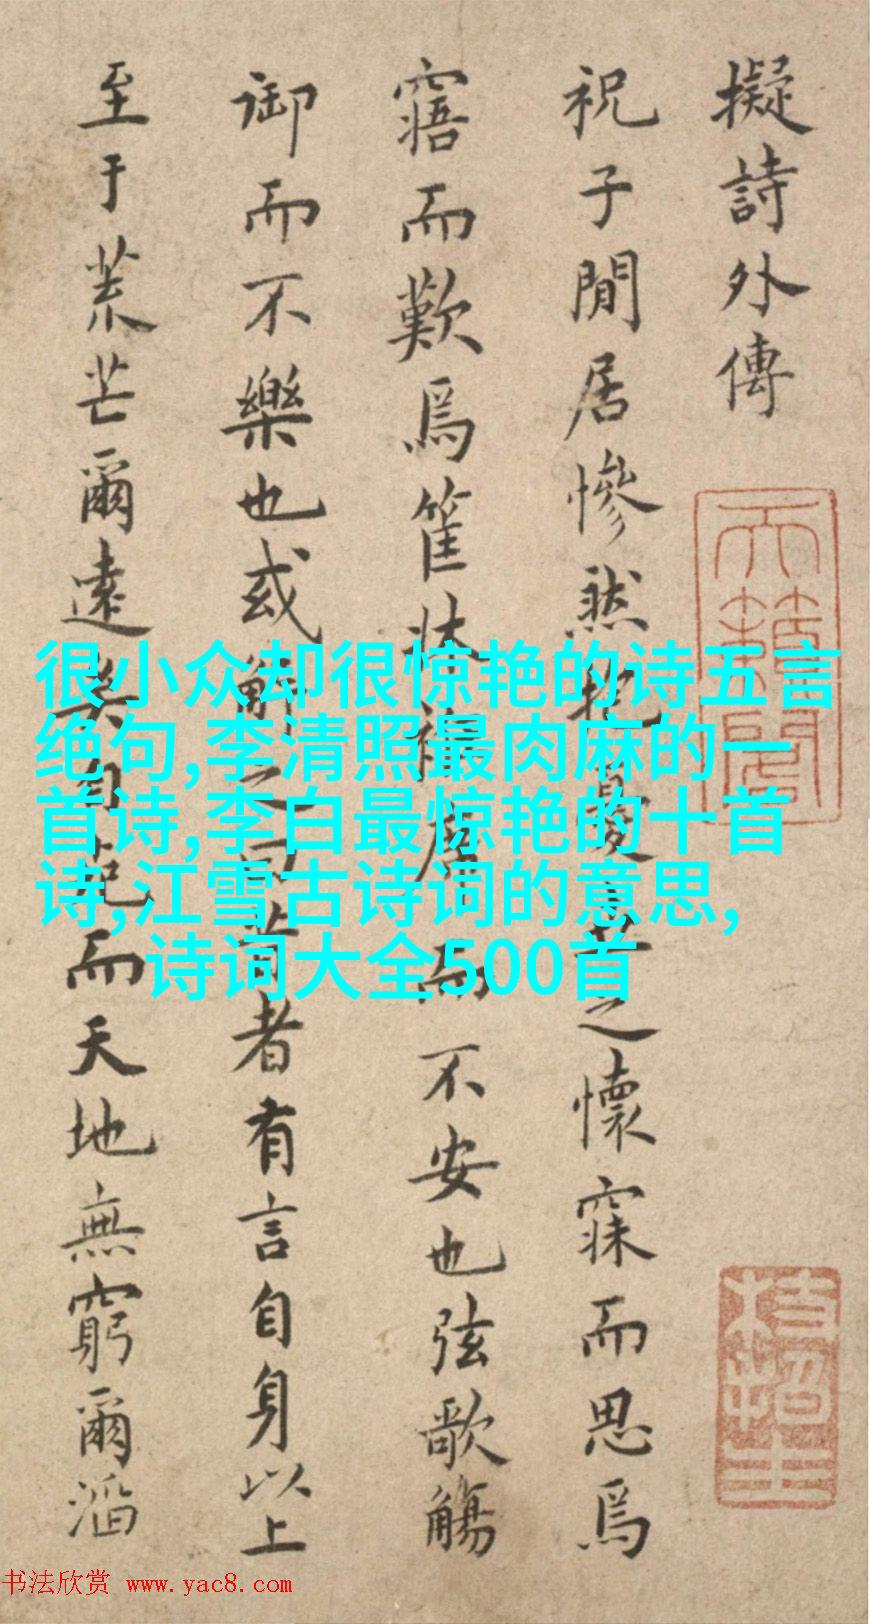 擬詩外傳
祝子閒居慘然抱憂世之懷寐而思爲
寤而歎爲筐牀席而不安也弦歌觴
御而不樂也或解之曰昔者有言自身以上
至于荒芒爾遠矣自死而天地無窮爾滔
天籟閣
枝指生
很小众却很惊艳的诗五言
绝句,李清照最肉麻的一
首诗,李白最惊艳的十首
诗,江雪古诗词的意思,
诗词大全500首
书法欣赏 www.yac8.com